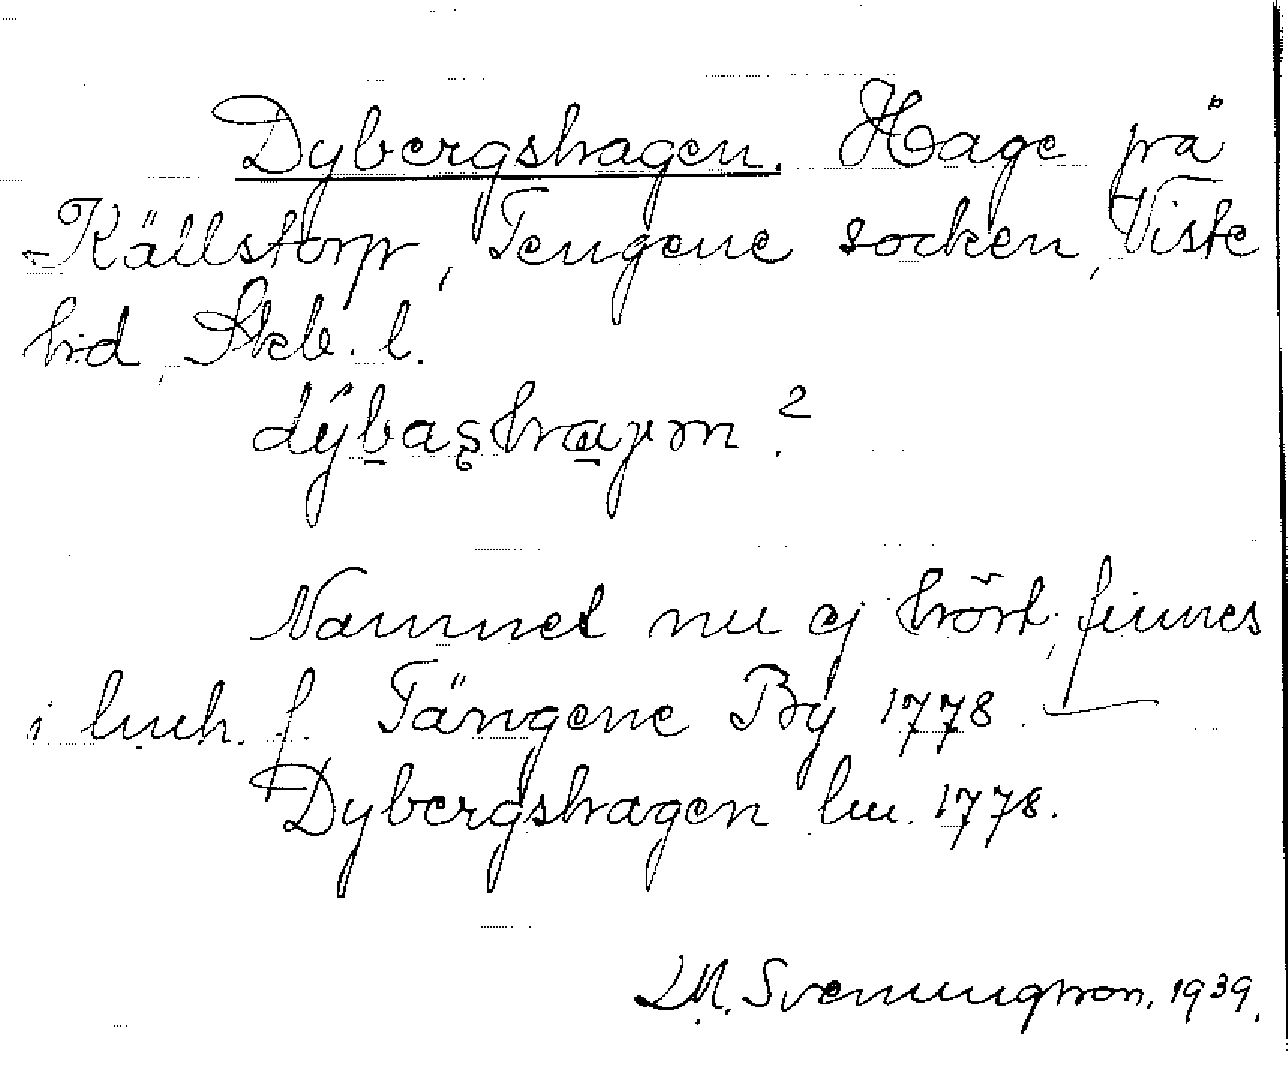 Dybergshagen. Hage på
Källstorp, Tengene socken, Viste
hd, Skb. l.
Namnet nu ej hört, finnes
i luh. f. Tängene By 1778.
Dybergshagen lm. 1778.
L.M. Svenungsson. 1939.